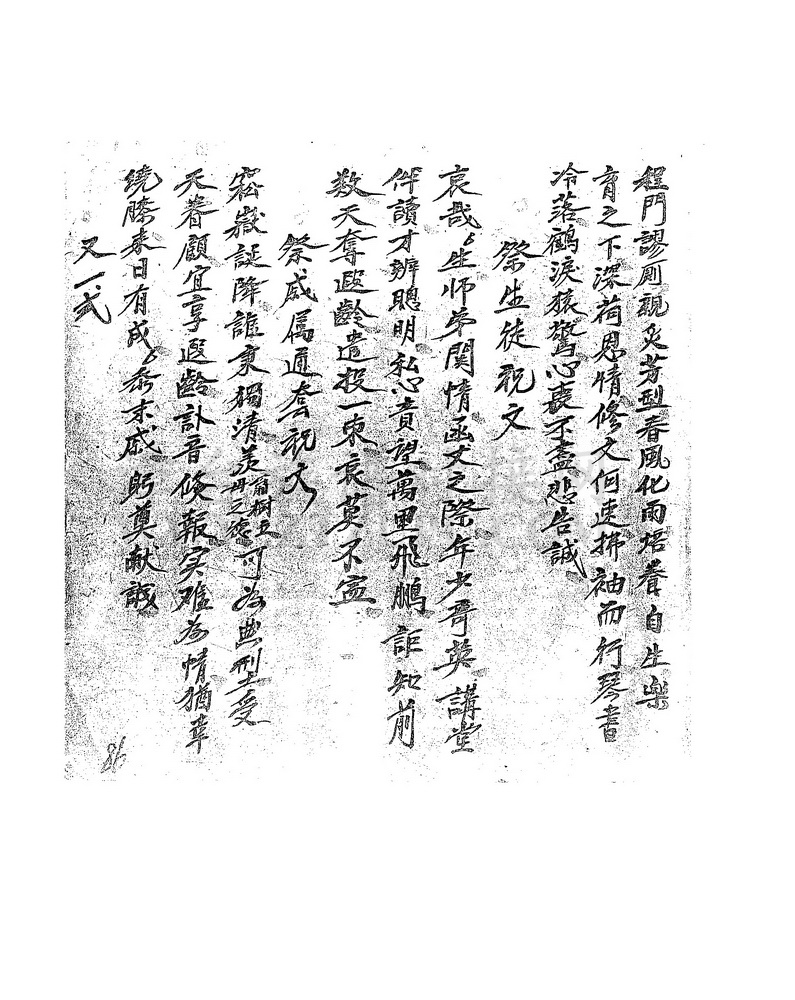 程門謬厠親炙芳型春風化雨培養自生樂
育之下深荷恩情修文何速拂袖而行琴書
冷落鶴淚猿驚心喪不盡悲告誠
祭生徒祝文
哀哉生師弟関情函丈之際年少奇英講堂
伴讀才辨聰明私心責望萬里飛鵬詎知前
数天奪遐齡遣投一束哀莫不宣
祭戚属通套祝文
崧嶽誕降誰秉獨清羨翁樹立母之德可為典刑上受
天眷顧宜享遐齡訃音倏報实难為情猶幸
繞膝来日有成忝末戚躬奠献誠
又一式
86